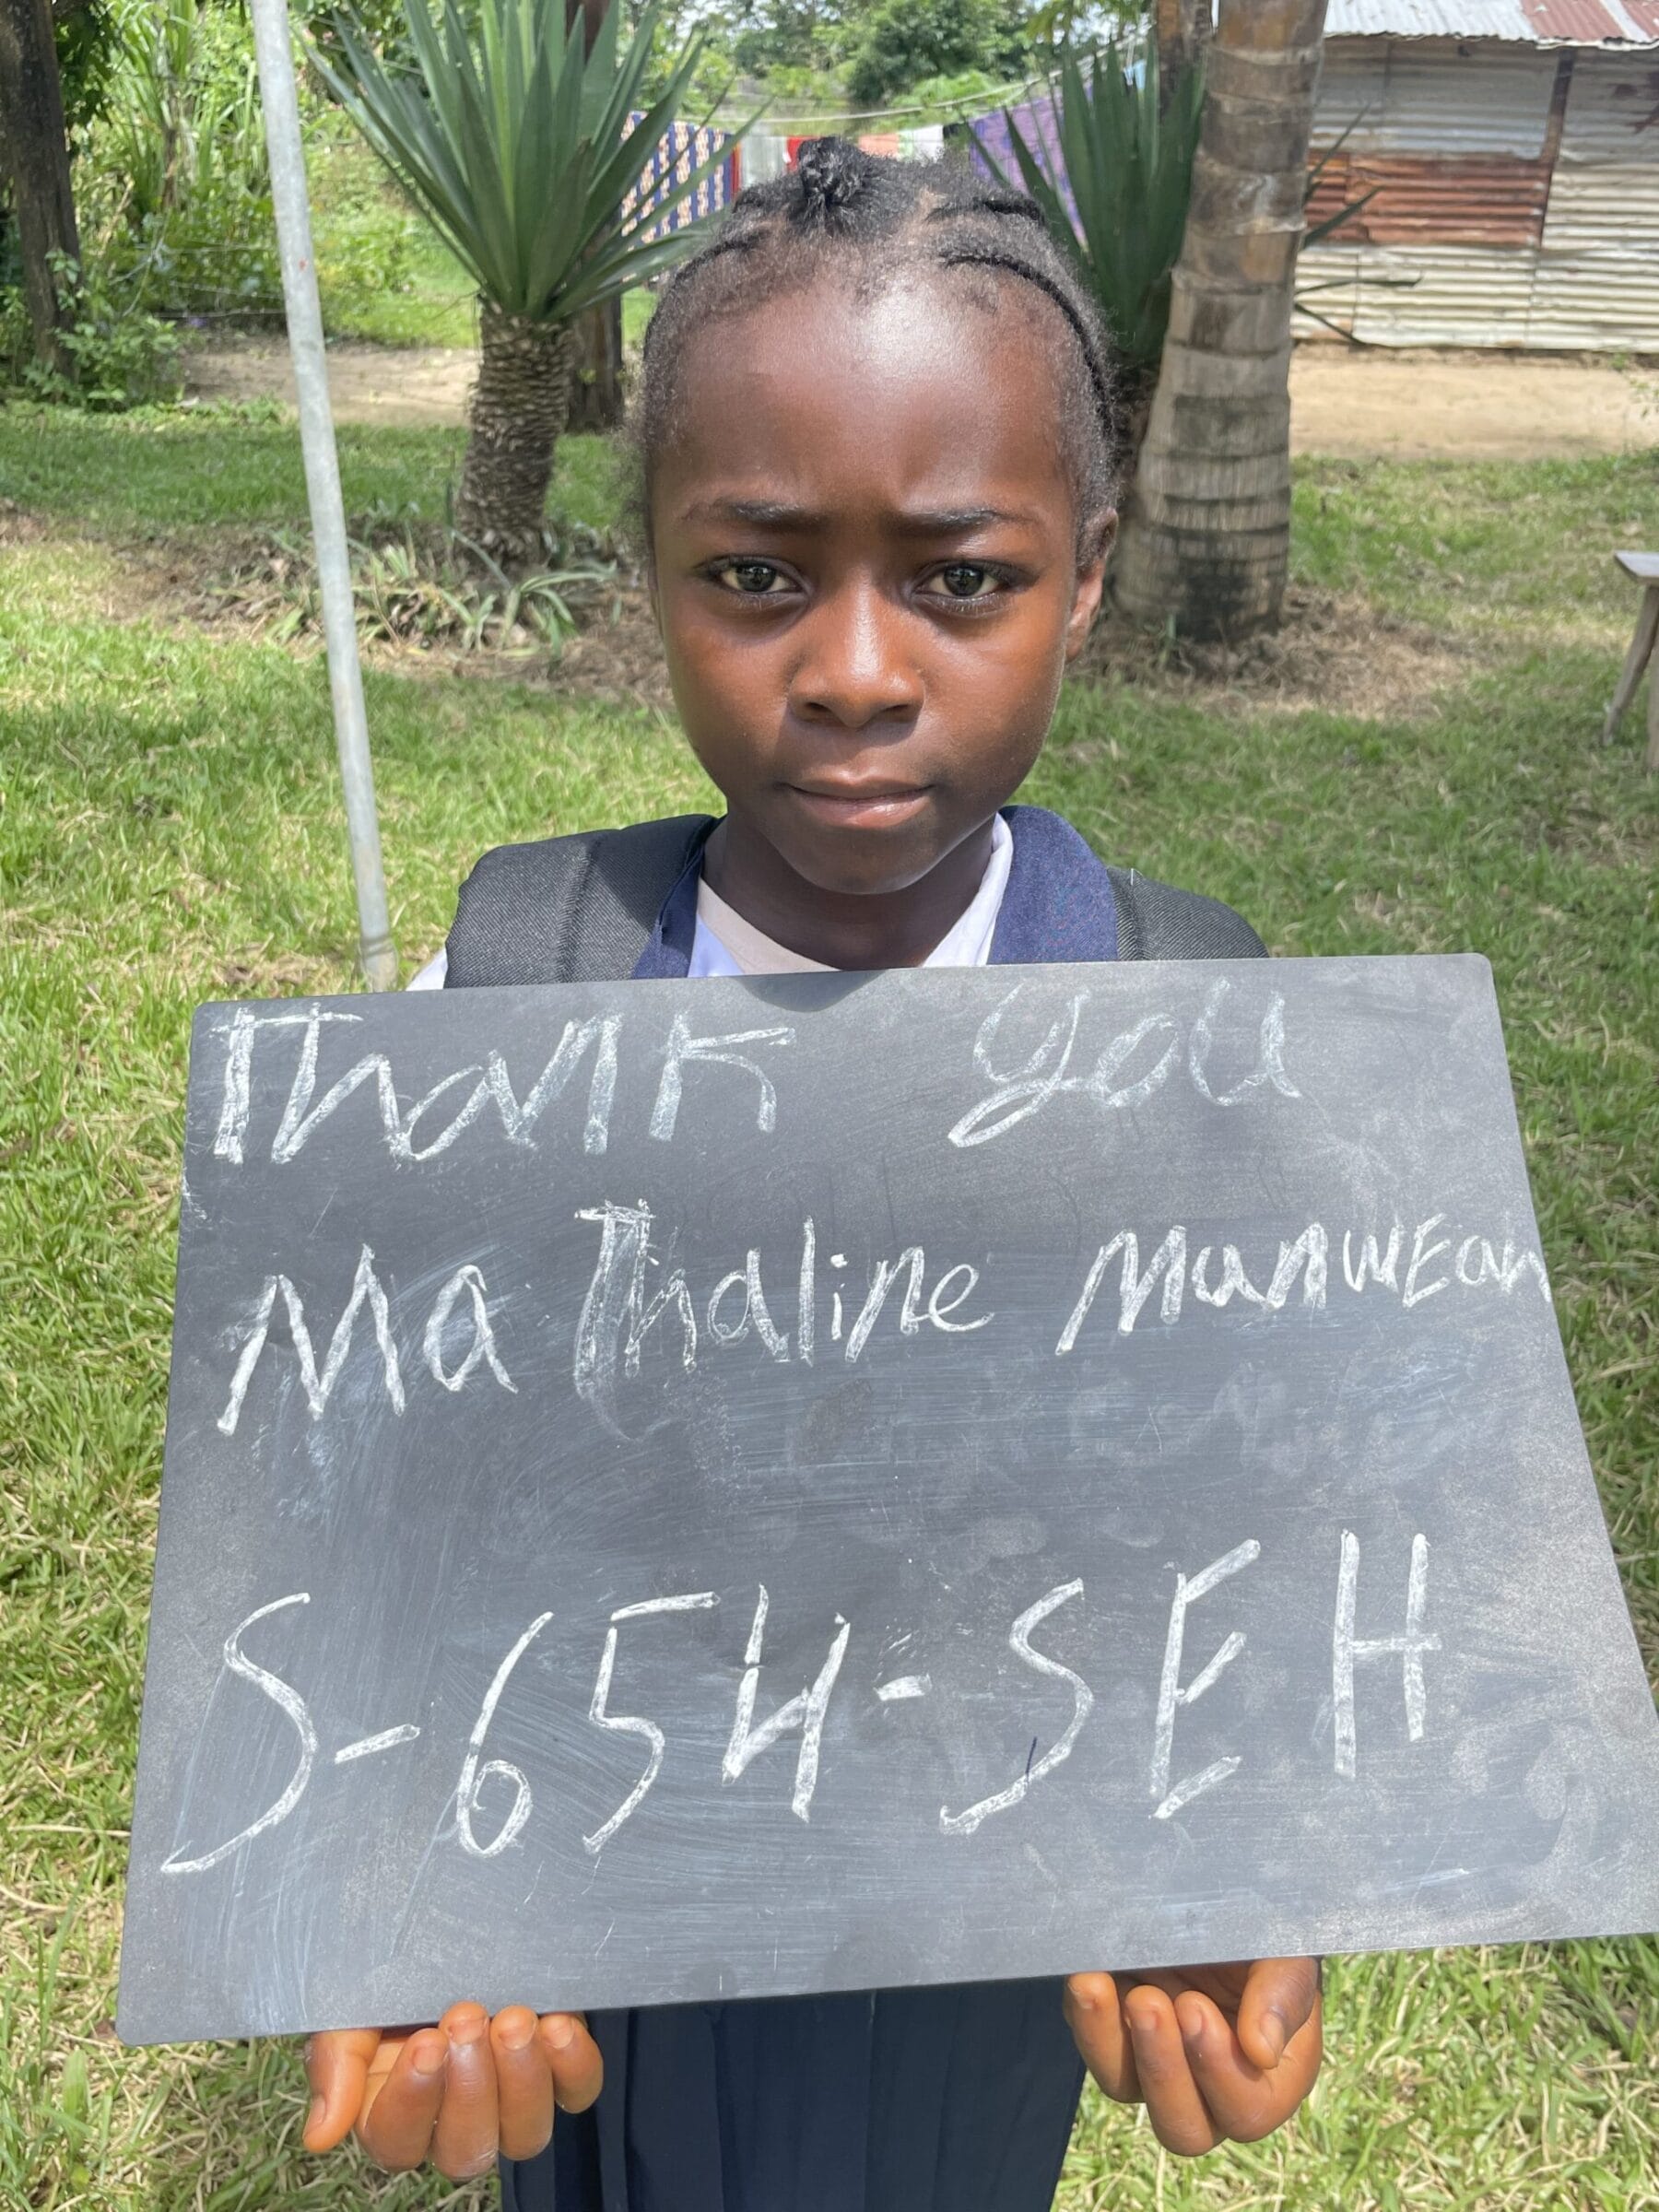 Thank you
Mathaline ManwEah
S-654-SEH